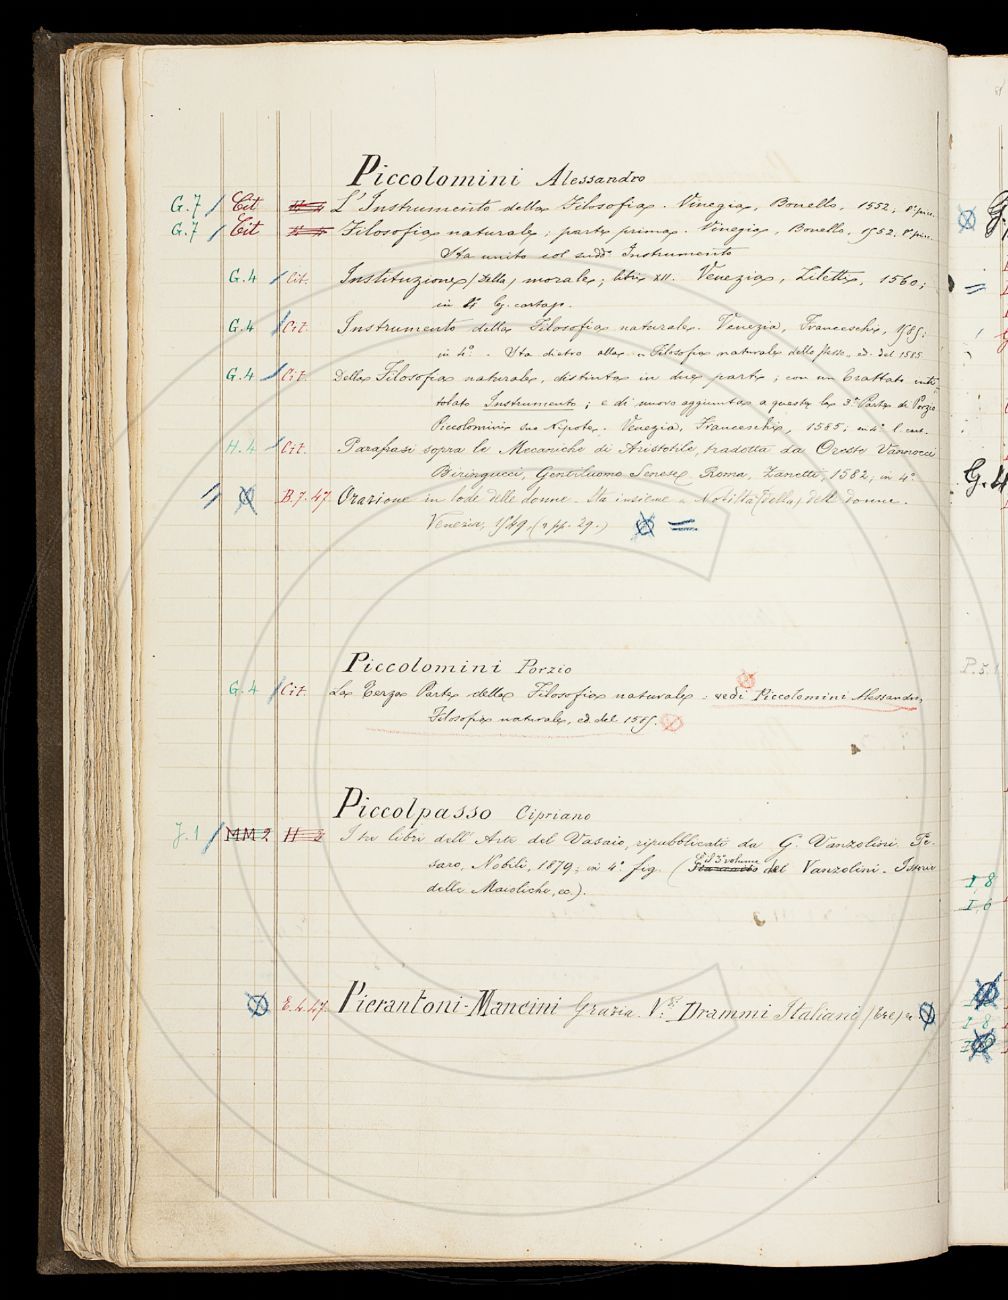 Piccolomini Alessandro
G.7 Cit L'Instrumento della Filosofia. Vinegia, Bonello, 1552, 8° picc.
G.7 Cit Filosofia naturale; parte prima. Vinegia, Bonello, 1552. 8° picc.
Sta unito col sudd° Instrumento
G.4 Cit. Instituzione (Della) morale; libri XII. Venezia, Ziletti, 1560;
in 4° leg. cartap.
G.4 Cit. Instrumento della Filosofia naturale. Venezia, Franceschi, 1585;
in 4°. Sta dietro alla Filosofia naturale dello stesso, ed. del 1585
G.4 Cit. Della Filosofia naturale, distinta in due parti; con un Trattato inti-
tolato Instrumento; e di nuovo aggiunta a queste la 3ª Parte di Porzio
Piccolomini suo Nipote. Venezia, Franceschi, 1585; in 4° l. cart.
H.4 Cit. Parafrasi sopra le Mecaniche di Aristotile, tradotta da Oreste Vannocci
Biringucci, Gentiluomo Senese. Roma, Zanetti, 1582, in 4°
B.7.47. Orazione in lode delle donne. Sta insieme a Nobiltà (Della) delle Donne.
Venezia, 1549. (a pp. 29.)
Piccolomini Porzio
G.4 Cit. La Terza Parte della Filosofia naturale - vedi Piccolomini Alessandro,
Filosofia naturale, ed. del 1585.
Piccolpasso Cipriano
J.1 MM 2 H 2 I tre libri dell'Arte del Vasaio, ripubblicati da G. Vanzolini. Pe-
saro, Nobili, 1879; in 4° fig. (È il 3° volume del Vanzolini - Istorie
delle Maioliche, ec).
E.4.47. Pierantoni-Mancini Grazia. V.di Drammi Italiani (Tre)
G.
G.4
P.5.
I,8
I,6
I 8